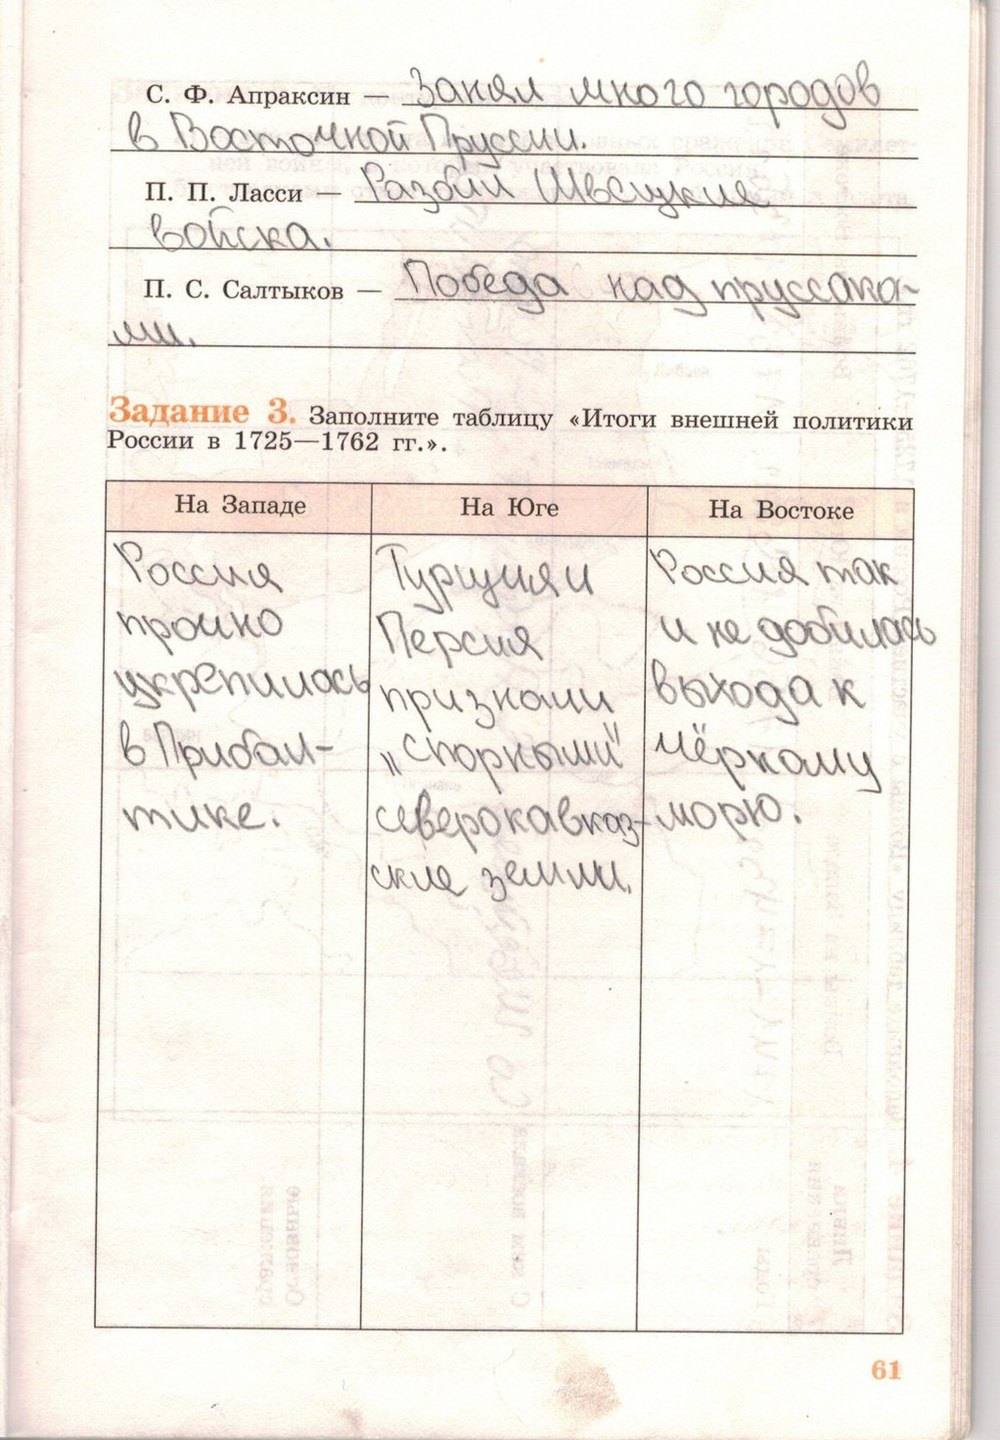 С. Ф. Апраксин — Занял много городов
в Восточной Пруссии.
П. П. Ласси — Разбил Шведские
войска.
П. С. Салтыков — Победа над пруссака-
ми.
Задание 3. Заполните таблицу «Итоги внешней политики
России в 1725—1762 гг.».
На Западе
На Юге
На Востоке
Россия
прочно
укрепилась
в Прибал-
тике.
Турция и
Персия
признали
„спорными"
северокавказ-
ские земли.
Россия так
и не добилась
выхода к
Чёрному
морю.
61